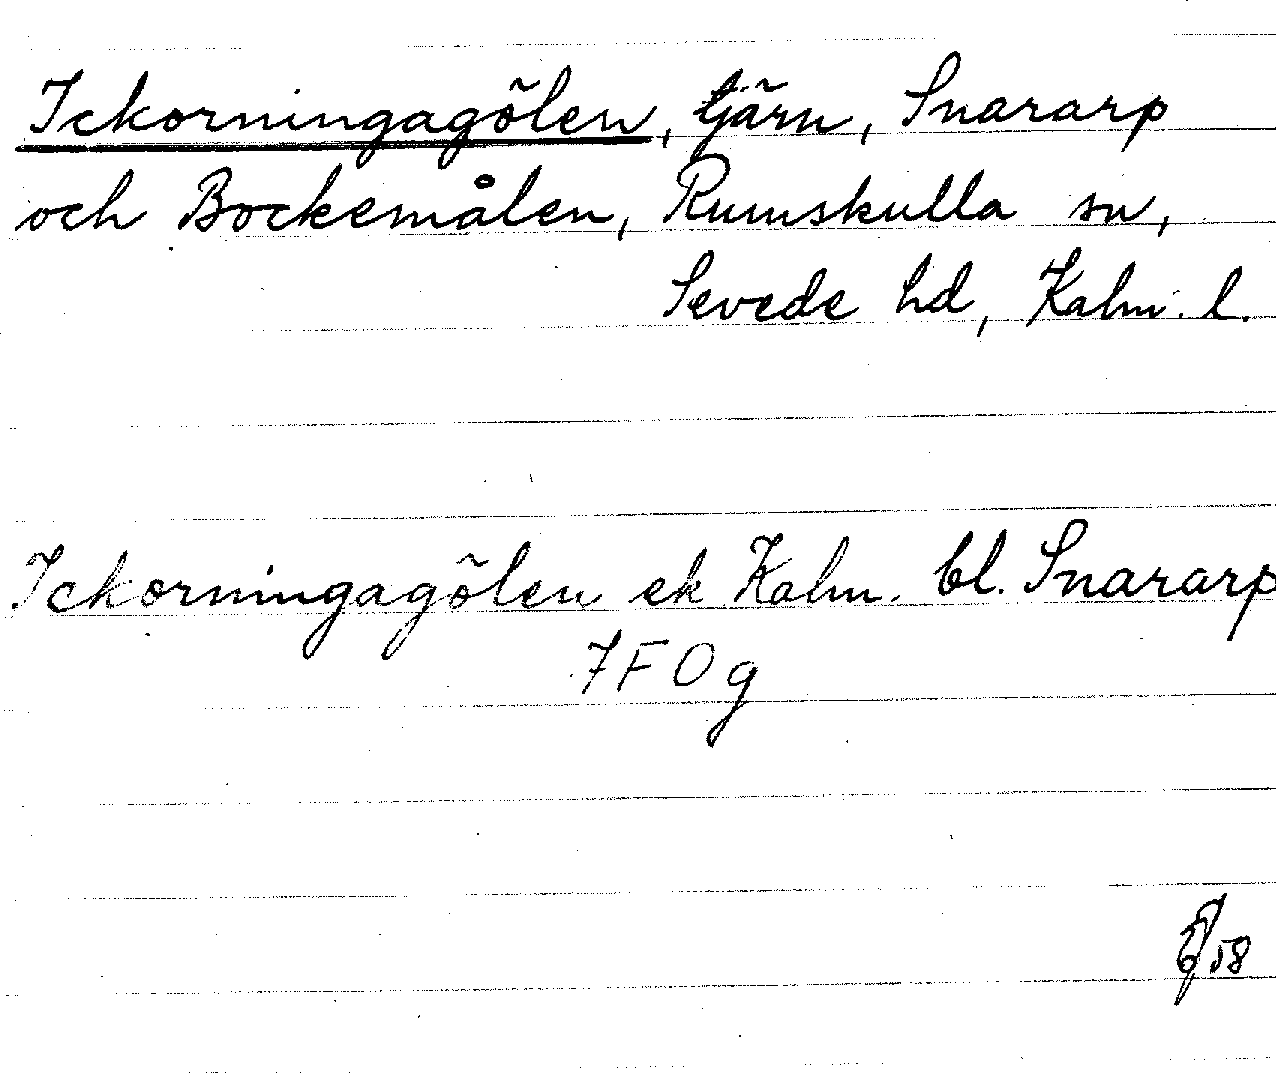 Ickorningagölen, tjärn, Snararp
och Bockemålen, Rumskulla sn,
Sevede hd, Kalm. l.
Ickorningagölen ek Kalm. bl. Snararp
7F0g
58